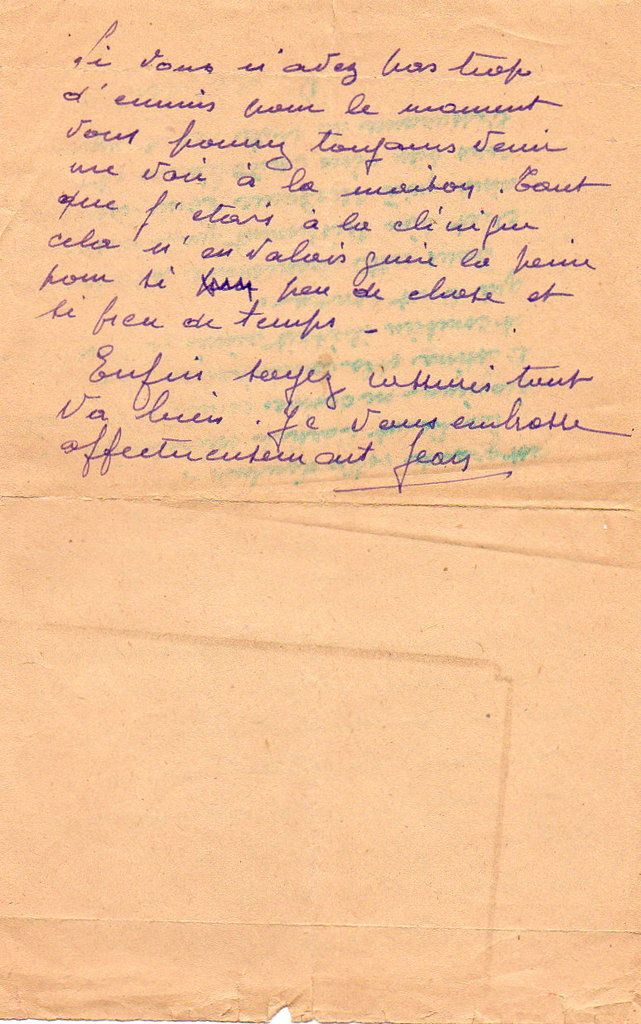 Si vous n'avez pas trop
d'ennuis pour le moment
vous pourrez toujours venir
me voir à la maison. Tant
que j'étais à la clinique
cela n'en valais guère la peine
pour si peu de chose et
si peu de temps _
Enfin soyez rassurés tout
va bien. Je vous embrasse
affectueusement Jean